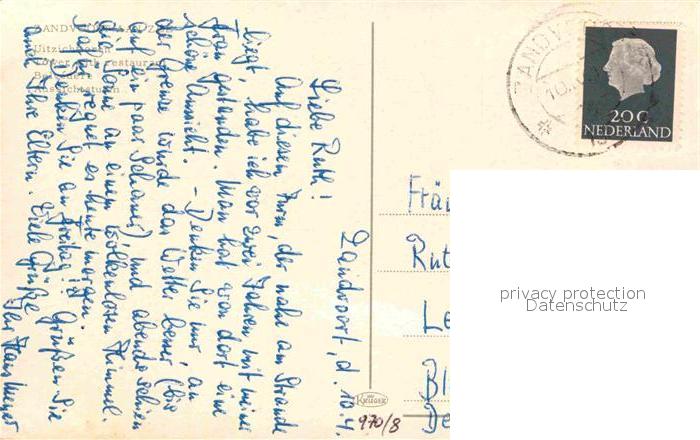 ZANDVOORT AAN ZEE
Uitzichttoren
Tower with restaurant
Belvédère
Aussichtsturm
Zandvoort, d. 10.4.
Liebe Ruth!
Auf diesem Turm, der nahe am Strande
liegt, habe ich vor zwei Jahren mit meiner
Frau gestanden. Man hat von dort eine
schöne Aussicht. – Denken Sie nur, an
der Grenze wurde das Wetter besser, (bis
auf ein paar Schauer) und abends schien
die Sonne an einem wolkenlosen Himmel.
Dafür regnet es heute morgen.
Denken Sie an Freitag!! Grüßen Sie
auch Ihre Eltern. Viele Grüße
Ihr
KRÜGER
970/8
ZANDVOORT
20 C
NEDERLAND
Fräu
Rut
Le
Bl
De
privacy protection
Datenschutz